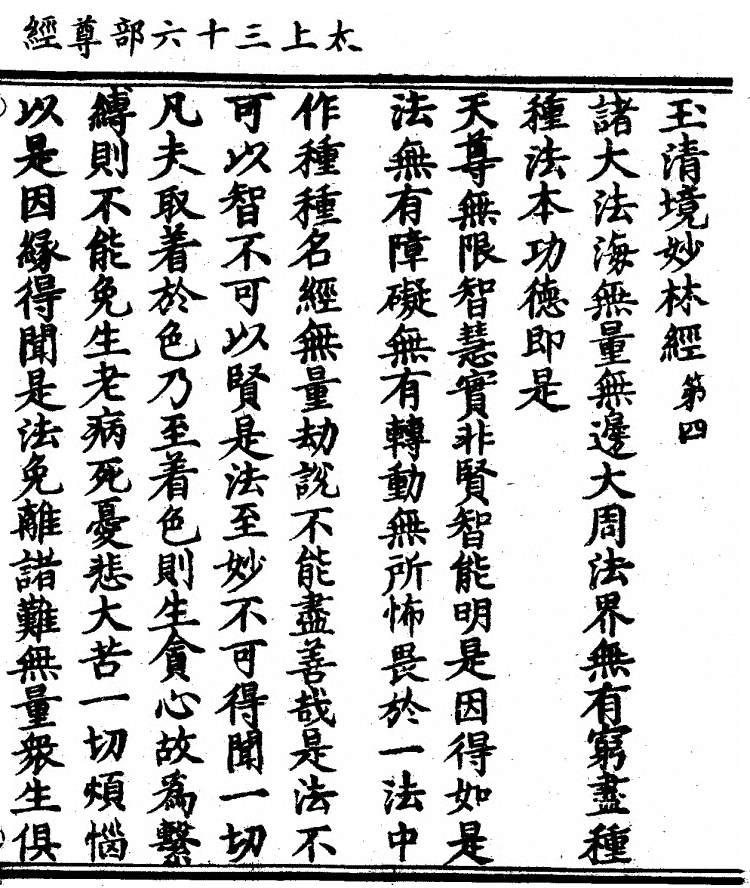 太上三十六部尊經
玉清境妙林經第四
諸大法海無量無邊大周法界無有窮盡種
種法本功德即是
天尊無限智慧實非賢智能明是因得如是
法無有障礙無有轉動無所怖畏於一法中
作種種名經無量劫說不能盡善哉是法不
可以智不可以賢是法至妙不可得聞一切
凡夫取着於色乃至着色則生貪心故為繫
縛則不能免生老病死憂悲大苦一切煩惱
以是因緣得聞是法免離諸難無量眾生俱